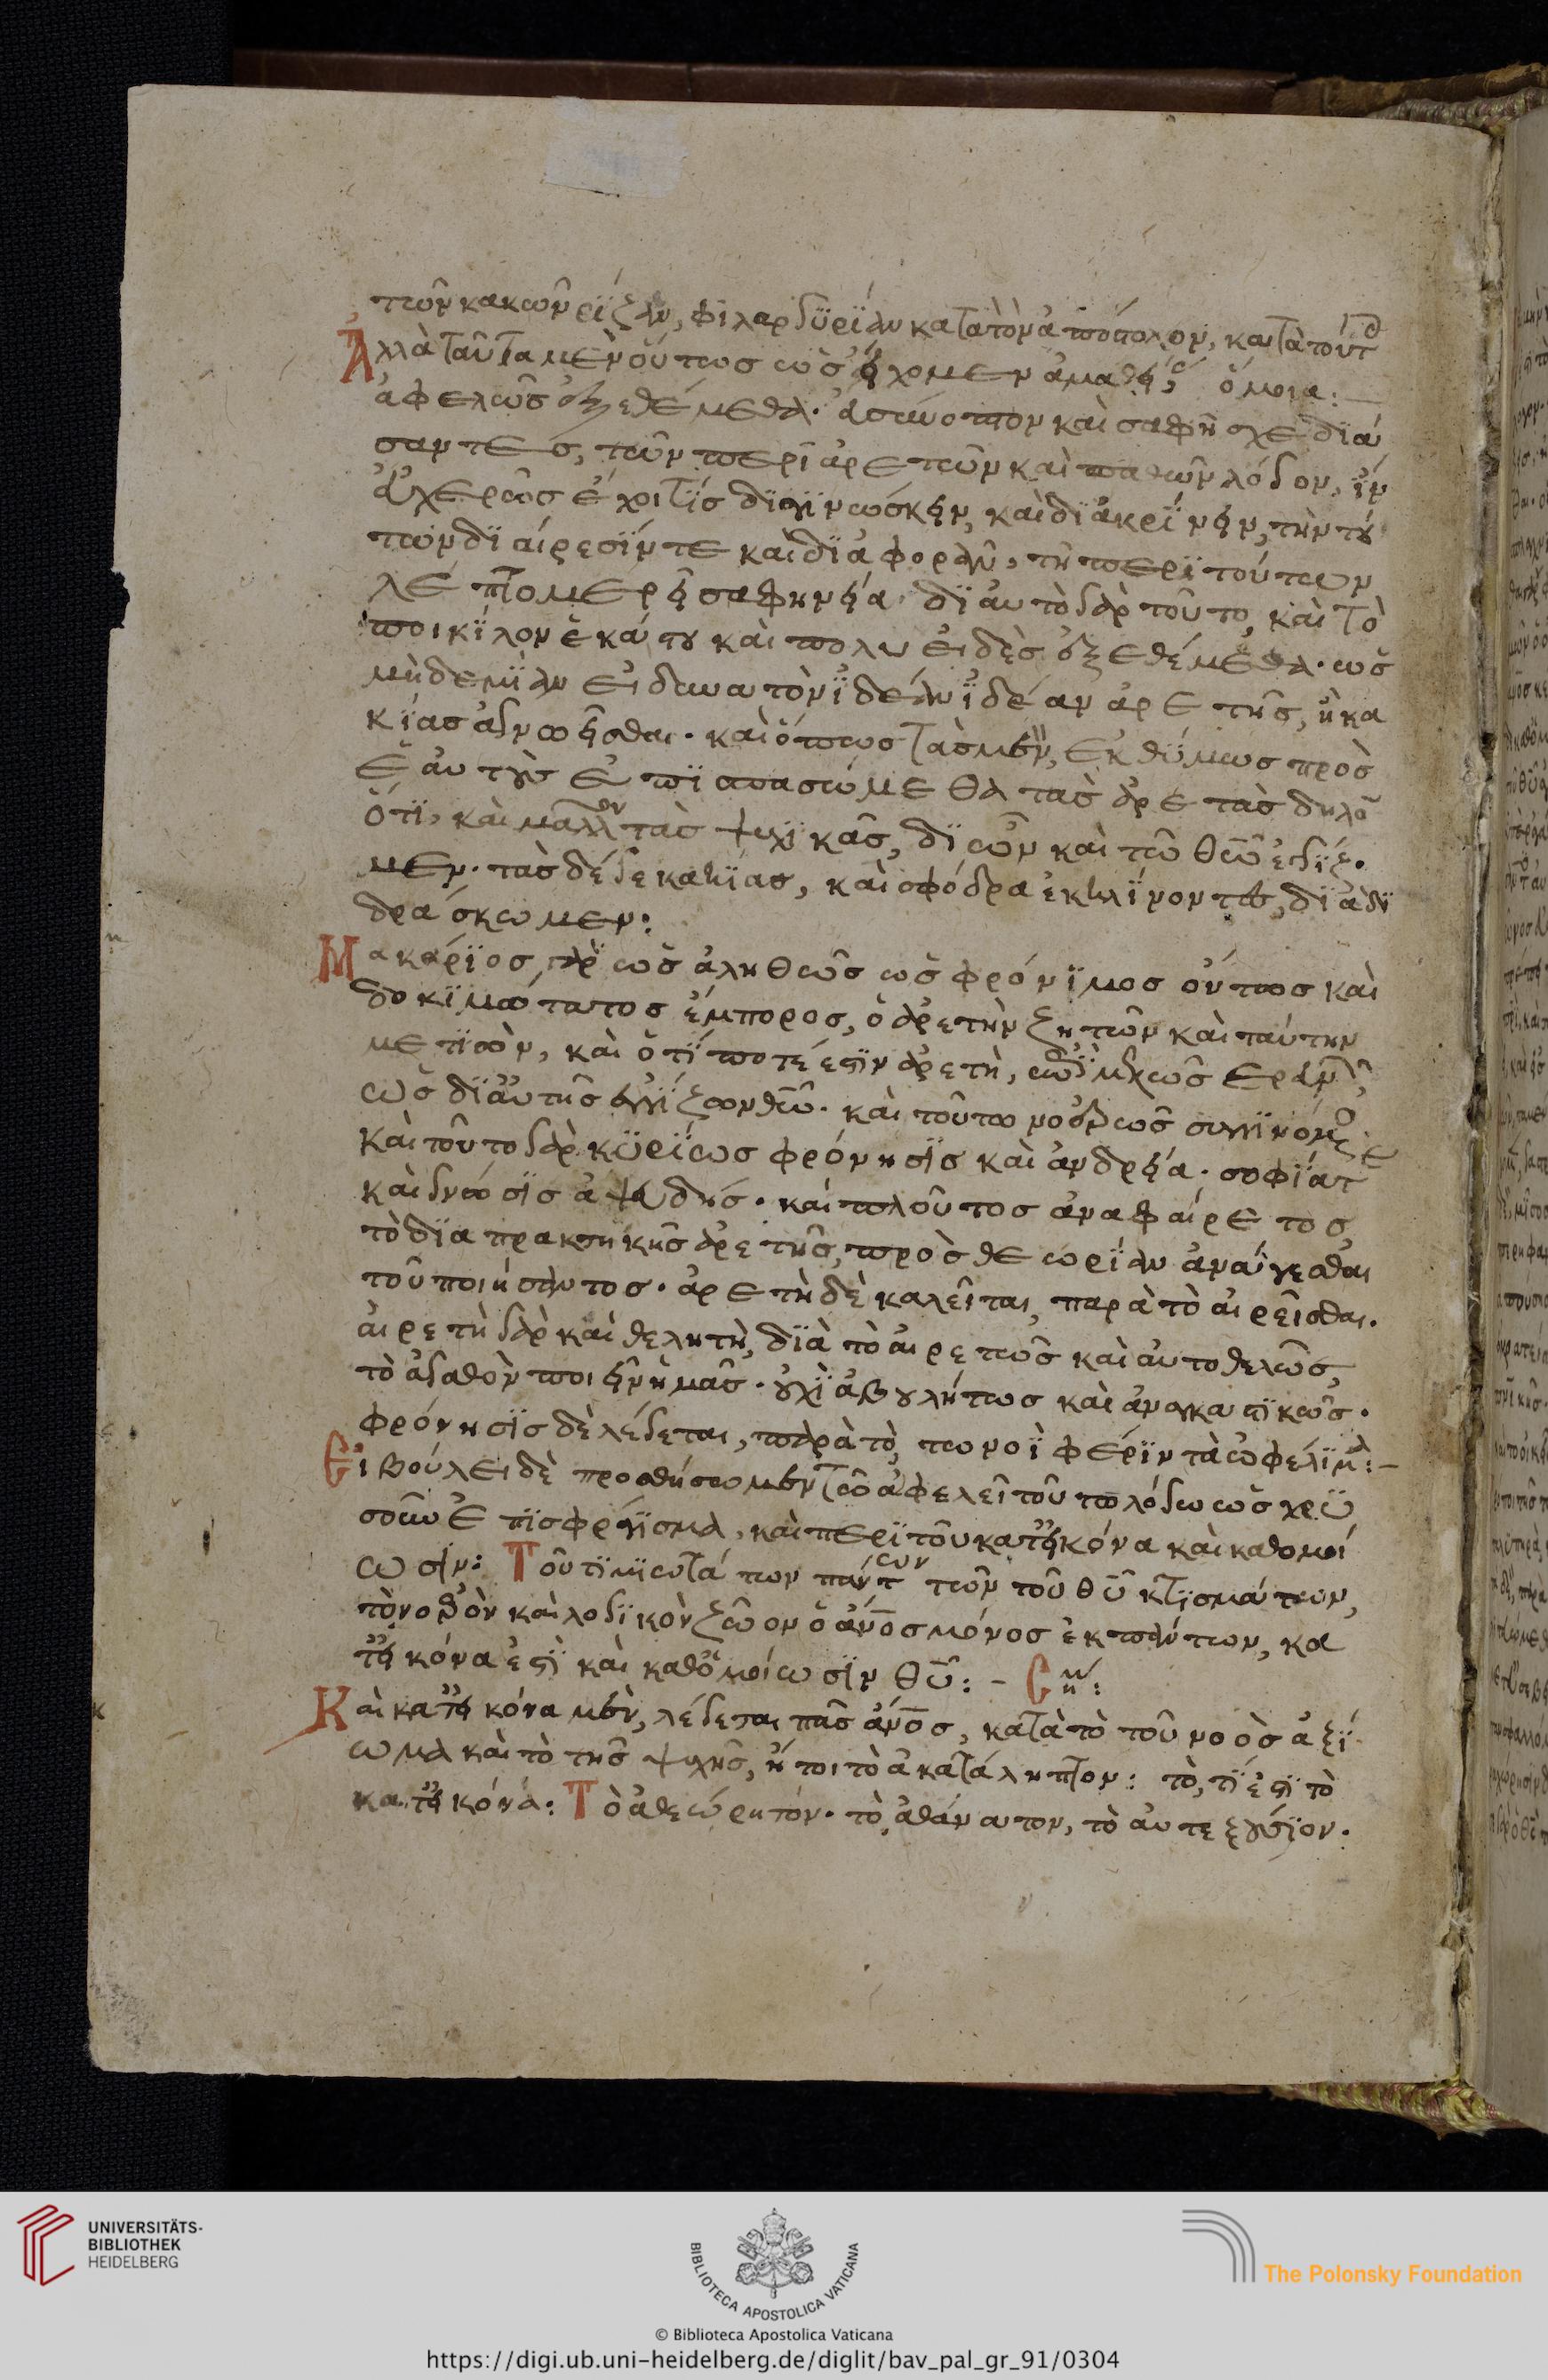 τῶν κακῶν ρΐζαν, φιλαργϋρΐαν κατατὸν ἀπόστολον, και τὰ τούτ
Ἀλλὰ ταῦτα μὲν οὕτως ὡς εἴχομεν ἀμαθεί ὅμοια:—
ἀφελῶς ἐξεθέμεθα· ἀσύνοπτον καὶ σαφῆ σχεδϊά
σαντες, τῶν περὶ ἀρετῶν καὶ παθῶν λόγον, ἵν
εὐχερῶς ἔχοι τῒς δϊαγϊνώσκειν, καὶ δϊακρΐνειν, τὴν τού
των δϊαίρεσΐν τε καὶ δϊαφορὰν, τῆ περὶ τούτων
λεπτομερεῖ σαφηνεία· δϊαυτὸ γὰρ τοῦτο, καὶ τὸ
ποικΐλον ἑκάστου καὶ πολυειδὲς ἐξεθέμεθα· ὡς
μὴδεμΐαν εἰ δυνατὸν ἰδέαν ἰδέαν ἀρετῆς, ἢ κα
κΐας ἀγνοεῖσθαι· καὶ ὅπως τὰς μὲν, ἐκθϋμως πρὸς
ἑαυτοὺς ἐπϊσπασώμεθα τὰς ἀρετὰς δηλο
ότι, καὶ μᾶλλον τὰς ψυχϊκὰς, δϊ ὧν καὶ τῶ θῶ ἐγγΐζο
μεν· τὰς δέ γε κακΐας, καὶ σφόδρα ἐκκλΐνοντες, δϊαδϊ
δράσκωμεν:
Μακάρϊος γὰρ ὡς ἀληθῶς ὡς φρόνϊμος όντως καὶ
δοκϊμώτατος έμπορος, ὁ ἀρετὴν ζητῶν καὶ ταύτην
μετϊὼν, καὶ ὅτΐ ποτέ ἐστϊν ἀρετὴ,
ὡς δϊ αὐτῆς ἐγγΐζων θῶ· καὶ τούτω νοερῶς συγγϊνόμ
καὶ τοῦτο γὰρ κϋρΐως φρόνησΐς καὶ ἀνδρεία· σοφία τ
καὶ γνῶσΐς ἀψευδής· καὶ πλοῦτος ἀναφαίρετος,
τὸ δϊα πρακτϊκῆς ἀρετῆς, πρὸς θεωρΐαν ἀνάγεσθαι
τοῦ ποιήσαντος· ἀρετὴ δὲ καλεῖται, παρὰ τὸ αἱρεῖσθαι·
αἱρετὴ γὰρ καὶ θελητὴ, δϊὰ τὸ αἱρετῶς καὶ αυτοθελῶς,
τὸ ἀγαθὸν ποιεῖν ἡμᾶς· οὐχϊ ἀβουλήτως καὶ ἀναγκαστϊκῶς·
φρόνησΐς δὲ λέγεται, παρὰ τὸ, τω νοϊ φέρϊν τὰ ὠφέλϊμα:—
Εἰ βούλει δὲ προσθήσωμεν τῶ ἀφελεῖ τούτω λόγω ὡς χρϋ
σοῦν ἐπϊσφράγϊσμα, καὶ περὶ τοῦ κατ εἰκόνα καὶ καθομοί
ωσΐν: Τοῦ τϊμϊωτάτων πάντων τῶν τοῦ θῦ κτϊσμάτων,
τὸ νοερὸν καὶ λογϊκὸν ζῶον ὁ ἄνος μόνος ἐκ πάντων, κα
τ εἰκόνα ἐστϊ καὶ καθὁμοίωσΐν θῦ:–
Καὶ κατ εἰκόνα μὲν, λέγεται πᾶς ἄνος, κατὰ τὸ τοῦ νοὸς ἀξΐ
ωμα καὶ τὸ τῆς ψυχῆς, ήτοι τὸ ἀκατάληπτον: τὸ, τΐ ἐστϊ τὸ
κατ εἰκόνα: Τὸ ἀθεώρητόν· τὸ ἀθάνατον, τὸ αὐτεξούσϊον·
UNIVERSITÄTS-
BIBLIOTHEK
HEIDELBERG
BIBLIOTECA APOSTOLICA VATICANA
The Polonsky Foundation
© Biblioteca Apostolica Vaticana
https://digi.ub.uni-heidelberg.de/diglit/bav_pal_gr_91/0304